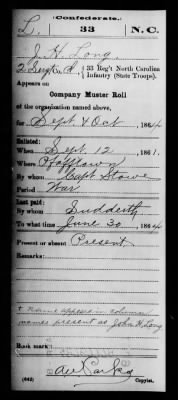 Confederate.
L. 33 N.C.
J. H. Long
2 Sergt, Co. 33 Reg't North Carolina
Infantry (State Troops).
Appears on
Company Muster Roll
of the organization named above,
for Sept & Oct, 1864
Enlisted:
When Sept 12, 1861.
Where
By whom Capt Stowe
Period War
Last paid:
By whom Sudderth
To what time June 30, 1864
Present or absent Present
Remarks:
* Name appears in column
names present as John H. Long
Book mark:
(642) Copyist.